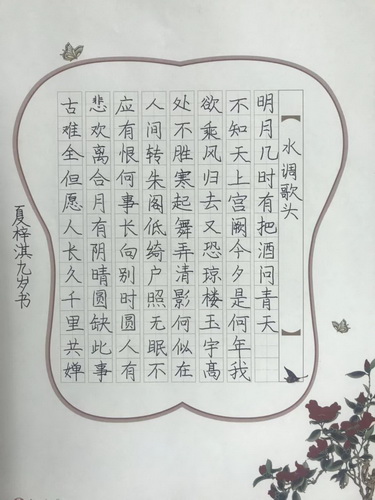 【水调歌头】
明月几时有把酒问青天
不知天上宫阙今夕是何年我
欲乘风归去又恐琼楼玉宇高
处不胜寒起舞弄清影何似在
人间转朱阁低绮户照无眠不
应有恨何事长向别时圆人有
悲欢离合月有阴晴圆缺此事
古难全但愿人长久千里共婵
夏梓淇九岁书